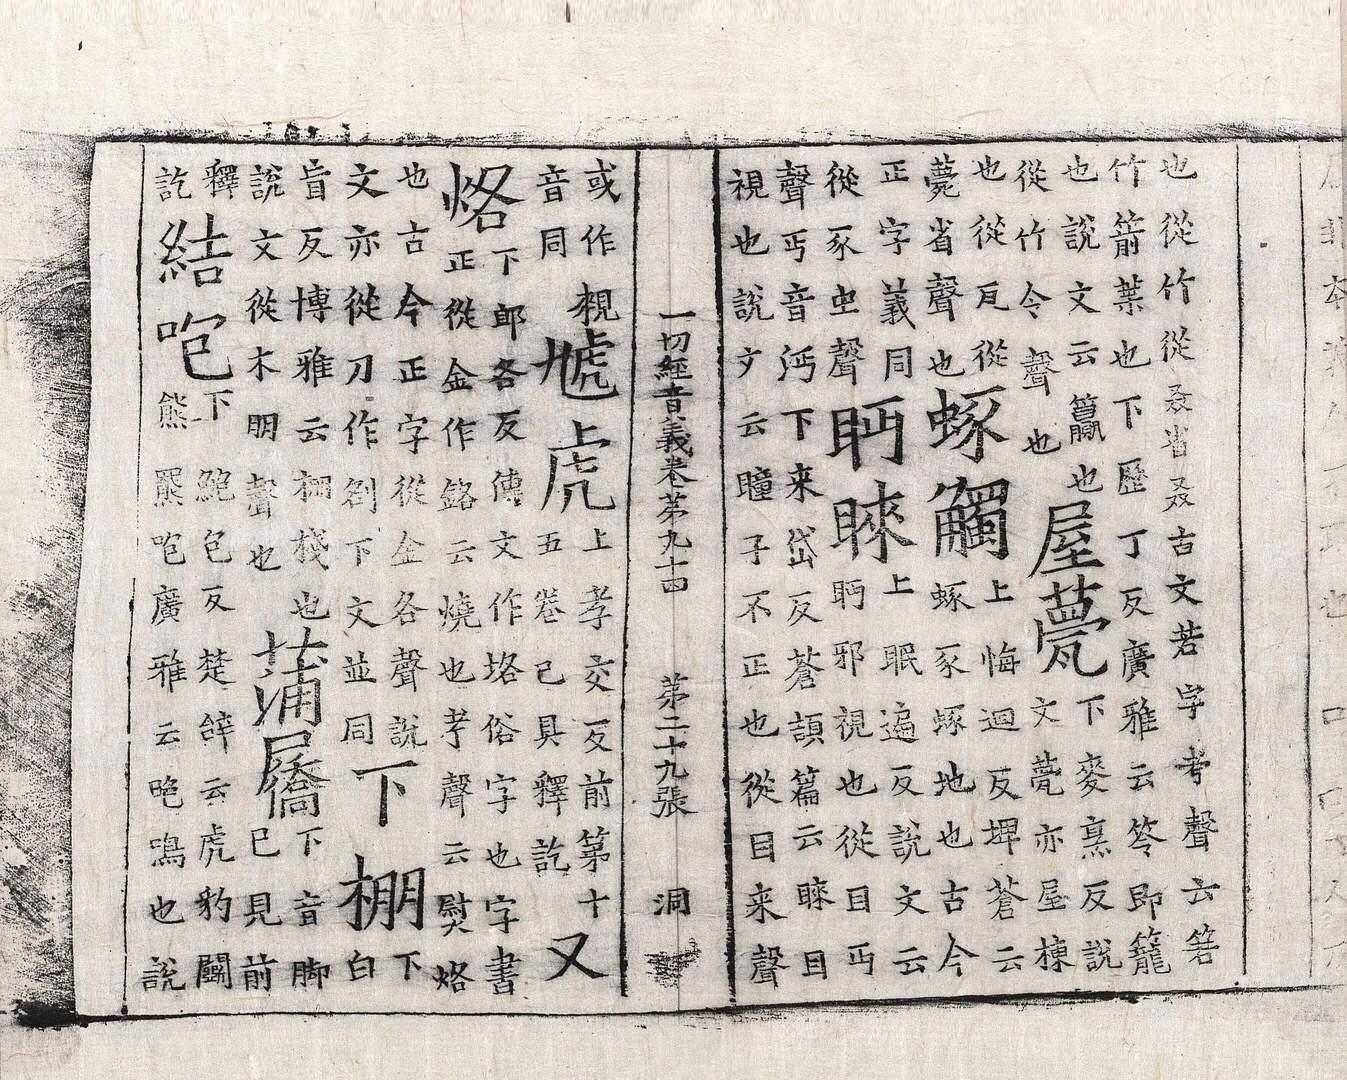 也從竹從叒省叒古文若字考聲云箬
竹箭葉也下歷丁反廣雅云笭即籠
也說文云籯也屋甍下麥烹反說
從竹令聲也文甍亦屋棟
也從瓦從
甍省聲也蜍觸上悔迴反埤蒼云
正字義同豖地也古今
從豕虫聲眄睞上眠遍反說文云
聲丏音沔下来岱反蒼頡篇云睞目
視也說文云瞳子不正也從目来聲
眄邪視也從目丏
一切經音義卷第九十四 第二十九張 洞
或作䙿虓虎上孝交反前第十
音同五卷已具釋訖又
烙下郎各反傳文作垎俗字也字書
正從金作鉻云燒也考聲云熨烙
也古今正字從金各聲說下棚下
文亦從刀作㓢下文並同白
盲反博雅云棚棧也蒲屩下音脚
說文從木朋聲也已見前
釋結咆下鮑包反楚辝云虎豹鬭
訖熊羆咆廣雅云咆鳴也說